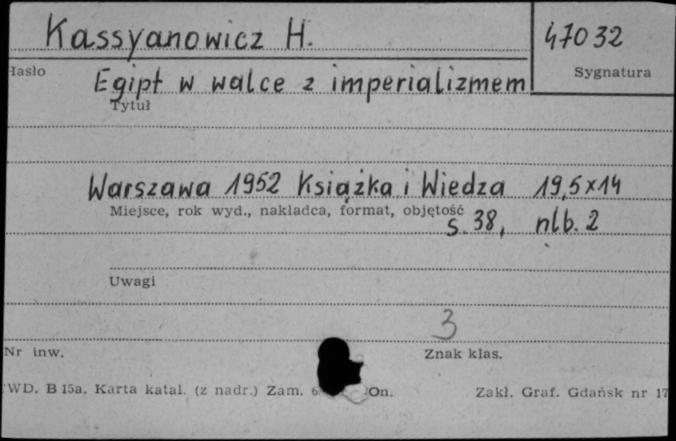 Kassyanowicz H. 47032
Hasło Sygnatura
Egipt w walce z imperializmem
Tytuł
Warszawa 1952 Książka i Wiedza 19,5x14
Miejsce, rok wyd., nakładca, format, objętość
s. 38, nlb. 2
Uwagi
3
Nr inw. Znak klas.
WD. B 15a. Karta katal. (z nadr.) Zam. On. Zakł. Graf. Gdańsk nr 17